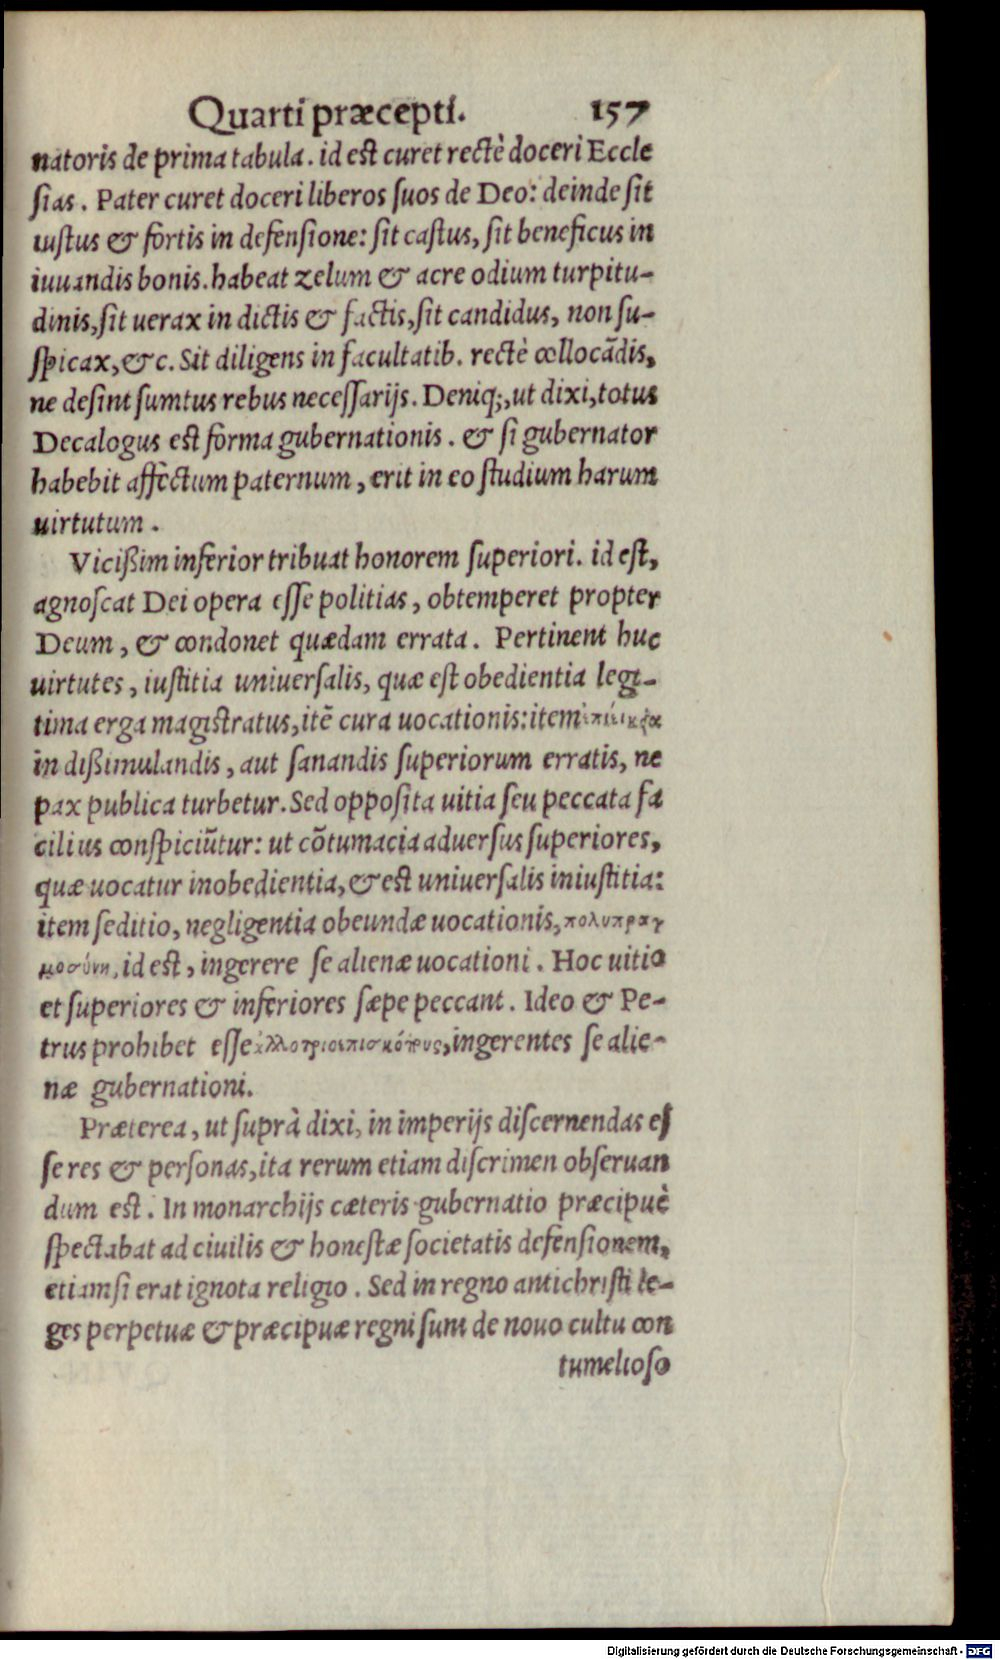 Quarti præcepti. 157
natoris de prima tabula. id est curet rectè doceri Eccle
ſias. Pater curet doceri liberos ſuos de Deo: deinde ſit
iuſtus & fortis in defenſione: ſit caſtus, ſit beneficus in
iuuandis bonis. habeat zelum & acre odium turpitu-
dinis, ſit uerax in dictis & factis, ſit candidus, non ſu-
ſpicax, &c. Sit diligens in facultatib. rectè collocādis,
ne deſint ſumtus rebus neceſſarijs. Deniq;, ut dixi, totus
Decalogus eſt forma gubernationis. & ſi gubernator
habebit affectum paternum, erit in eo ſtudium harum
uirtutum.
Viciſsim inferior tribuat honorem ſuperiori. id eſt,
agnoſcat Dei opera eſſe politias, obtemperet propter
Deum, & condonet quædam errata. Pertinent huc
uirtutes, iuſtitia uniuerſalis, quæ eſt obedientia legi-
tima erga magiſtratus, itē cura uocationis: item ἐπιείκεια
in diſsimulandis, aut ſanandis ſuperiorum erratis, ne
pax publica turbetur. Sed oppoſita uitia ſeu peccata fa
cilius conſpiciūtur: ut cōtumacia aduerſus ſuperiores,
quæ uocatur inobedientia, & eſt uniuerſalis iniuſtitia:
item ſeditio, negligentia obeundæ uocationis, πολυπραγ
μοσύνη, id eſt, ingerere ſe alienæ uocationi. Hoc uitio
et ſuperiores & inferiores ſæpe peccant. Ideo & Pe-
trus prohibet eſſe ἀλλοτριοεπισκόπους, ingerentes ſe alie-
næ gubernationi.
Præterea, ut ſuprà dixi, in imperijs diſcernendas eſ
ſe res & perſonas, ita rerum etiam diſcrimen obſeruan
dum eſt. In monarchijs cæteris gubernatio præcipuè
ſpectabat ad ciuilis & honeſtæ ſocietatis defenſionem,
etiamſi erat ignota religio. Sed in regno antichriſti le-
ges perpetuæ & præcipuæ regni ſunt de nouo cultu con
tumelioſo
Digitalisierung gefördert durch die Deutsche Forschungsgemeinschaft - DFG